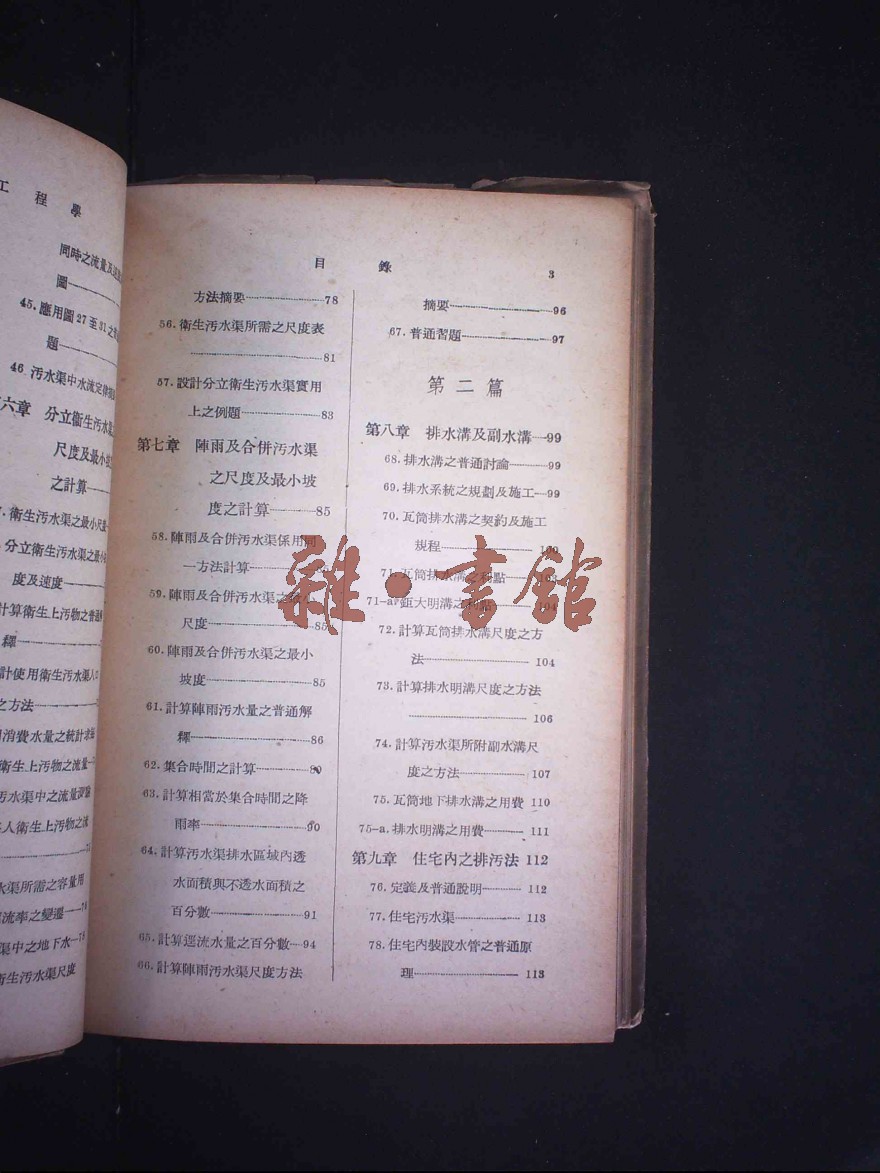 工程學
同時之流量及速
圖
45.應用圖27至31之
題
46 污水渠中水流定律
六章 分立衞生污水
尺度及最小坡
之計算
衞生污水渠之最小尺
分立衞生污水渠之最小
度及速度
計算衞生上污物之普通
釋
計使用衞生污水渠人
之方法
消費水量之統計
衞生上污物之流量
污水渠中之流量
人衞生上污物之流
水渠所需之容量用
流率之變遷
渠中之地下水
衞生污水渠尺度
目 錄 3
方法摘要 78
56.衞生污水渠所需之尺度表
81
57.設計分立衞生污水渠實用
上之例題 83
第七章 陣雨及合併污水渠
之尺度及最小坡
度之計算 85
58.陣雨及合併污水渠係用同
一方法計算
59.陣雨及合併污水渠之最小
尺度 85
60.陣雨及合併污水渠之最小
坡度 85
61.計算陣雨污水量之普通解
釋 86
62.集合時間之計算
63.計算相當於集合時間之降
雨率 90
64.計算污水渠排水區域內透
水面積與不透水面積之
百分數 91
65.計算逕流水量之百分數 94
66.計算陣雨污水渠尺度方法
摘要 96
67.普通習題 97
第二篇
第八章 排水溝及副水溝 99
68.排水溝之普通討論 99
69.排水系統之規劃及施工 99
70.瓦筒排水溝之契約及施工
規程 100
71.瓦筒排水溝之利點 103
71-a.鉅大明溝之利點 104
72.計算瓦筒排水溝尺度之方
法 104
73.計算排水明溝尺度之方法
106
74.計算污水渠所附副水溝尺
度之方法 107
75.瓦筒地下排水溝之用費 110
75-a.排水明溝之用費 111
第九章 住宅內之排污法 112
76.定義及普通說明 112
77.住宅污水渠 113
78.住宅內裝設水管之普通原
理 113
雜·書館